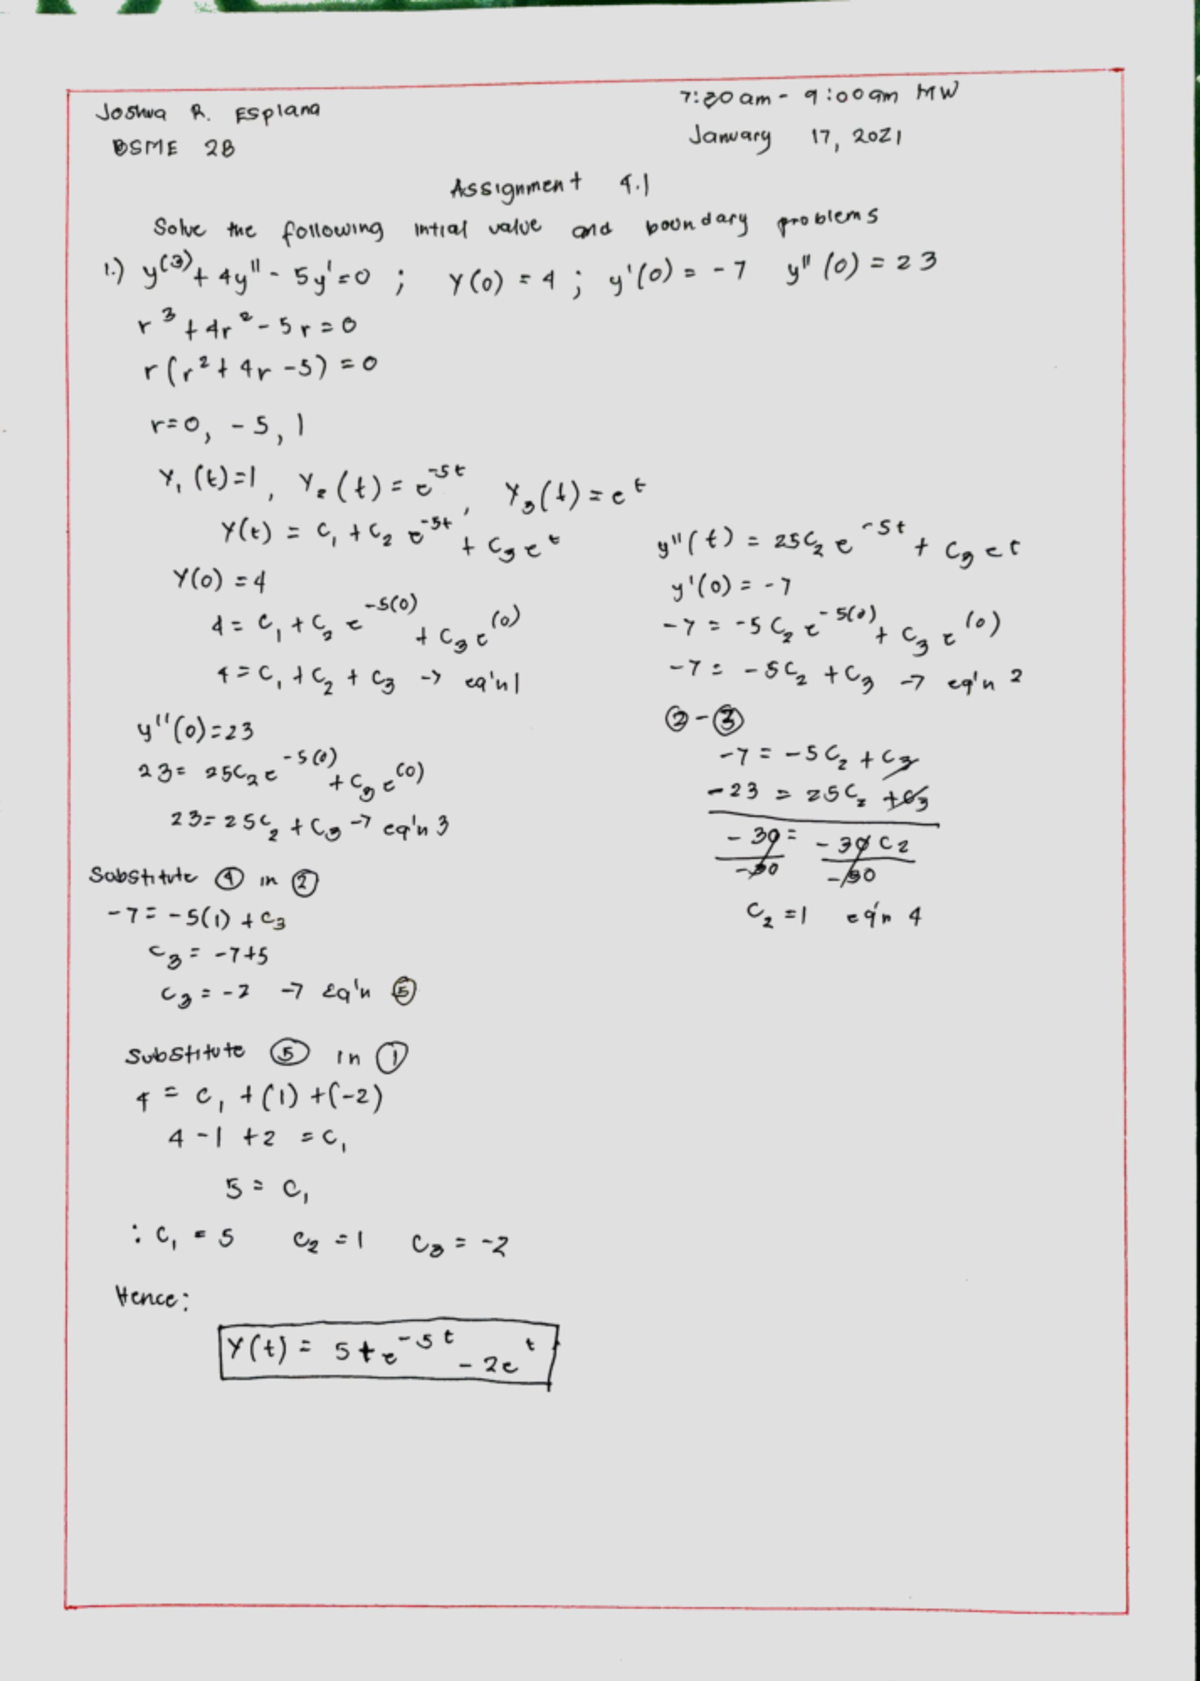 Joshua R. Esplana
7:30 am - 9:00 am MW
BSME 2B
January 17, 2021
Assignment 4.1
Solve the following intial value and boundary problems
1.) y⁽³⁾ + 4y'' - 5y' = 0 ; Y(0) = 4 ; y'(0) = -7 y''(0) = 23
r³ + 4r² - 5r = 0
r(r² + 4r - 5) = 0
r = 0, -5, 1
Y₁(t) = 1, Y₂(t) = e^-5t, Y₃(t) = e^t
Y(t) = C₁ + C₂ e^-5t + C₃ e^t
Y(0) = 4
4 = C₁ + C₂ e^-5(0) + C₃ e^(0)
4 = C₁ + C₂ + C₃ → eq'n 1
y''(t) = 25C₂ e^-5t + C₃ e^t
y'(0) = -7
-7 = -5C₂ e^-5(0) + C₃ e^(0)
-7 = -5C₂ + C₃ → eq'n 2
y''(0) = 23
23 = 25C₂ e^-5(0) + C₃ e^(0)
23 = 25C₂ + C₃ → eq'n 3
② - ③
-7 = -5C₂ + C₃
-23 = 25C₂ + C₃
-30 = -30C₂
-30 -30
C₂ = 1 eq'n 4
Substitute ④ in ②
-7 = -5(1) + C₃
C₃ = -7+5
C₃ = -2 → Eq'n ⑤
Substitute ⑤ in ①
4 = C₁ + (1) + (-2)
4 - 1 + 2 = C₁
5 = C₁
: C₁ = 5 C₂ = 1 C₃ = -2
Hence:
Y(t) = 5 + e^-5t - 2e^t